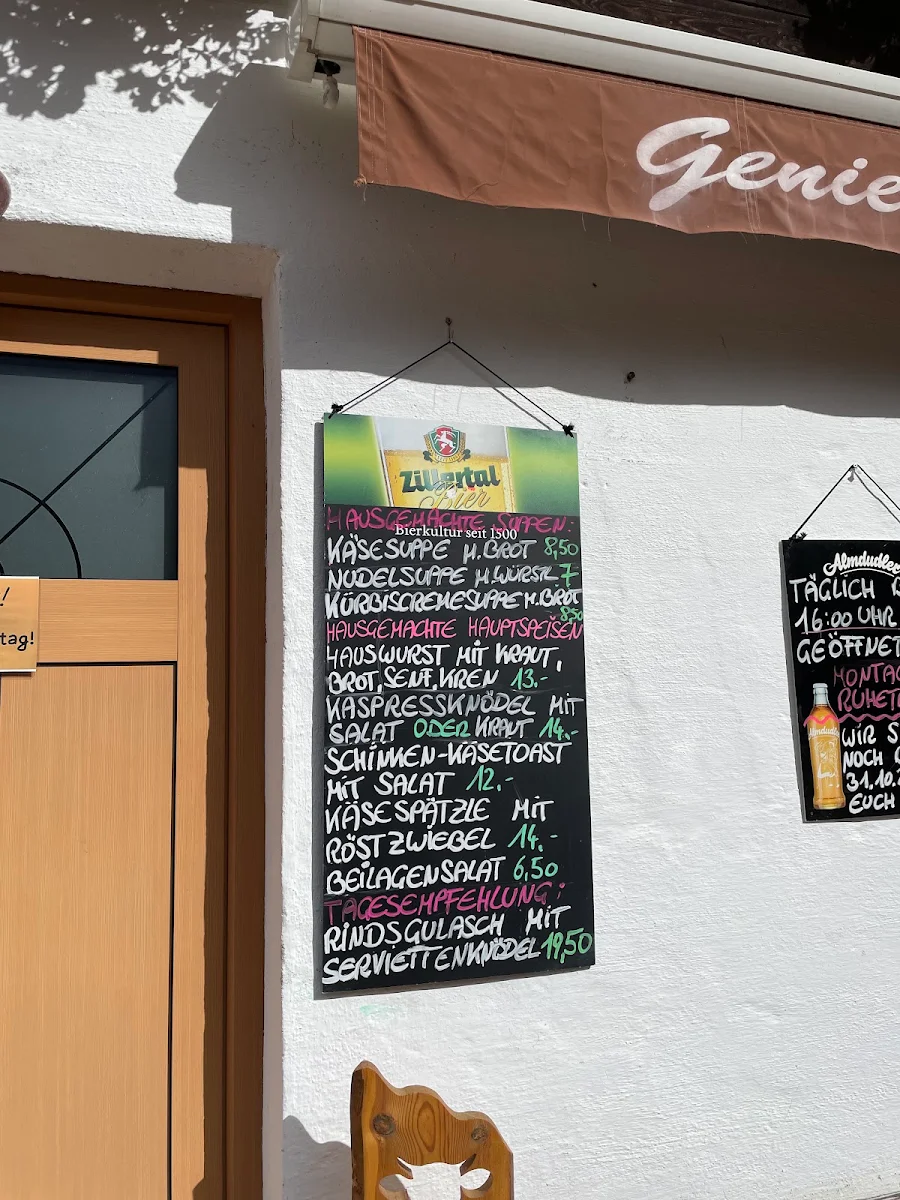 Genie
Zillertal
Bier
HAUSGEMACHTE SUPPEN:
Bierkultur seit 1500
KÄSESUPPE M.BROT 8,50
NUDELSUPPE M.WÜRSTL 7
KÜRBISCREMESUPPE M.BROT
8,50
HAUSGEMACHTE HAUPTSPEISEN
HAUSWURST MIT KRAUT,
BROT, SENF, KREN 13.-
KASPRESSKNÖDEL MIT
SALAT ODER KRAUT 14.-
SCHINKEN-KÄSETOAST
MIT SALAT 12.-
KÄSESPÄTZLE MIT
RÖSTZWIEBEL 14.-
BEILAGENSALAT 6,50
TAGESEMPFEHLUNG:
RINDSGULASCH MIT
SERVIETTENKNÖDEL 19,50
!
tag!
Almdudler
TÄGLICH
16:00 UHR
GEÖFFNET
MONTA
RUHET
WIR S
NOCH
31.10.
EUCH
Almdudler